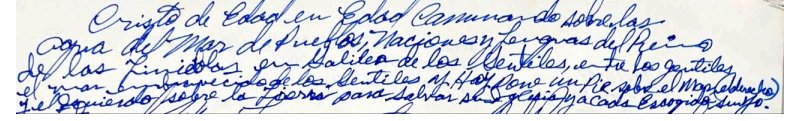 Cristo de Edad en Edad Caminando sobre las
agua del Mar de Pueblos, Naciones y Lenguas del Reino
de las Tinieblas en Galilea de los Gentiles, entre los gentiles,
el mar de los Gentiles y Hoy pone un Pie sobre el Mar (el derecho)
y el izquierdo sobre la Tierra para salvar su Iglesia y a cada Escogido Suyo.